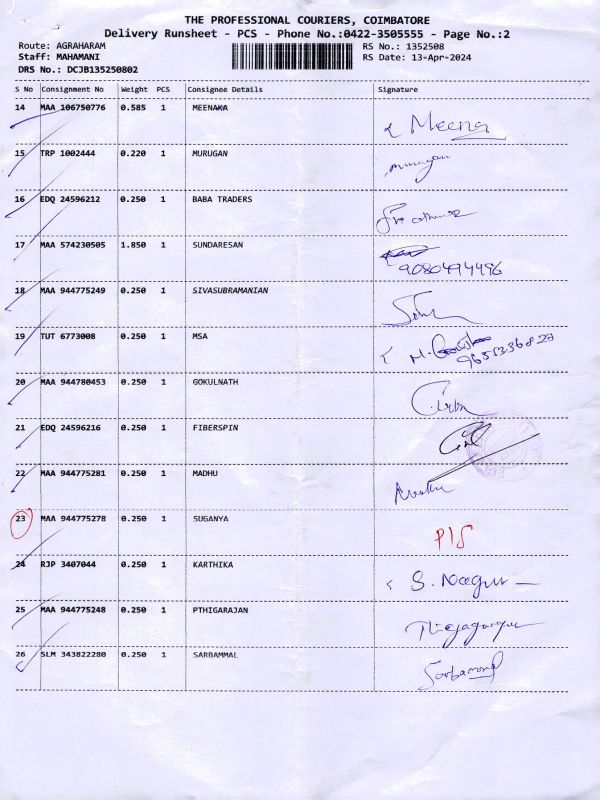 THE PROFESSIONAL COURIERS, COIMBATORE
Delivery Runsheet - PCS - Phone No.:0422-3505555 - Page No.:2
Route: AGRAHARAM RS No.: 1352508
Staff: MAHAMANI RS Date: 13-Apr-2024
DRS No.: DCJB135250802
S No Consignment No Weight PCS Consignee Details Signature
14 MAA 106750776 0.585 1 MEENAKA
Meena
15 TRP 1002444 0.220 1 MURUGAN
murugan
16 EDQ 24596212 0.250 1 BABA TRADERS
17 MAA 574230505 1.850 1 SUNDARESAN
9080494496
18 MAA 944775249 0.250 1 SIVASUBRAMANIAN
19 TUT 6773008 0.250 1 MSA
M.
20 MAA 944780453 0.250 1 GOKULNATH
21 EDQ 24596216 0.250 1 FIBERSPIN
22 MAA 944775281 0.250 1 MADHU
23 MAA 944775278 0.250 1 SUGANYA
P/S
24 RJP 3407044 0.250 1 KARTHIKA
S. Nagur
25 MAA 944775248 0.250 1 PTHIGARAJAN
26 SLM 343822280 0.250 1 SARBAMMAL
Sarbammal